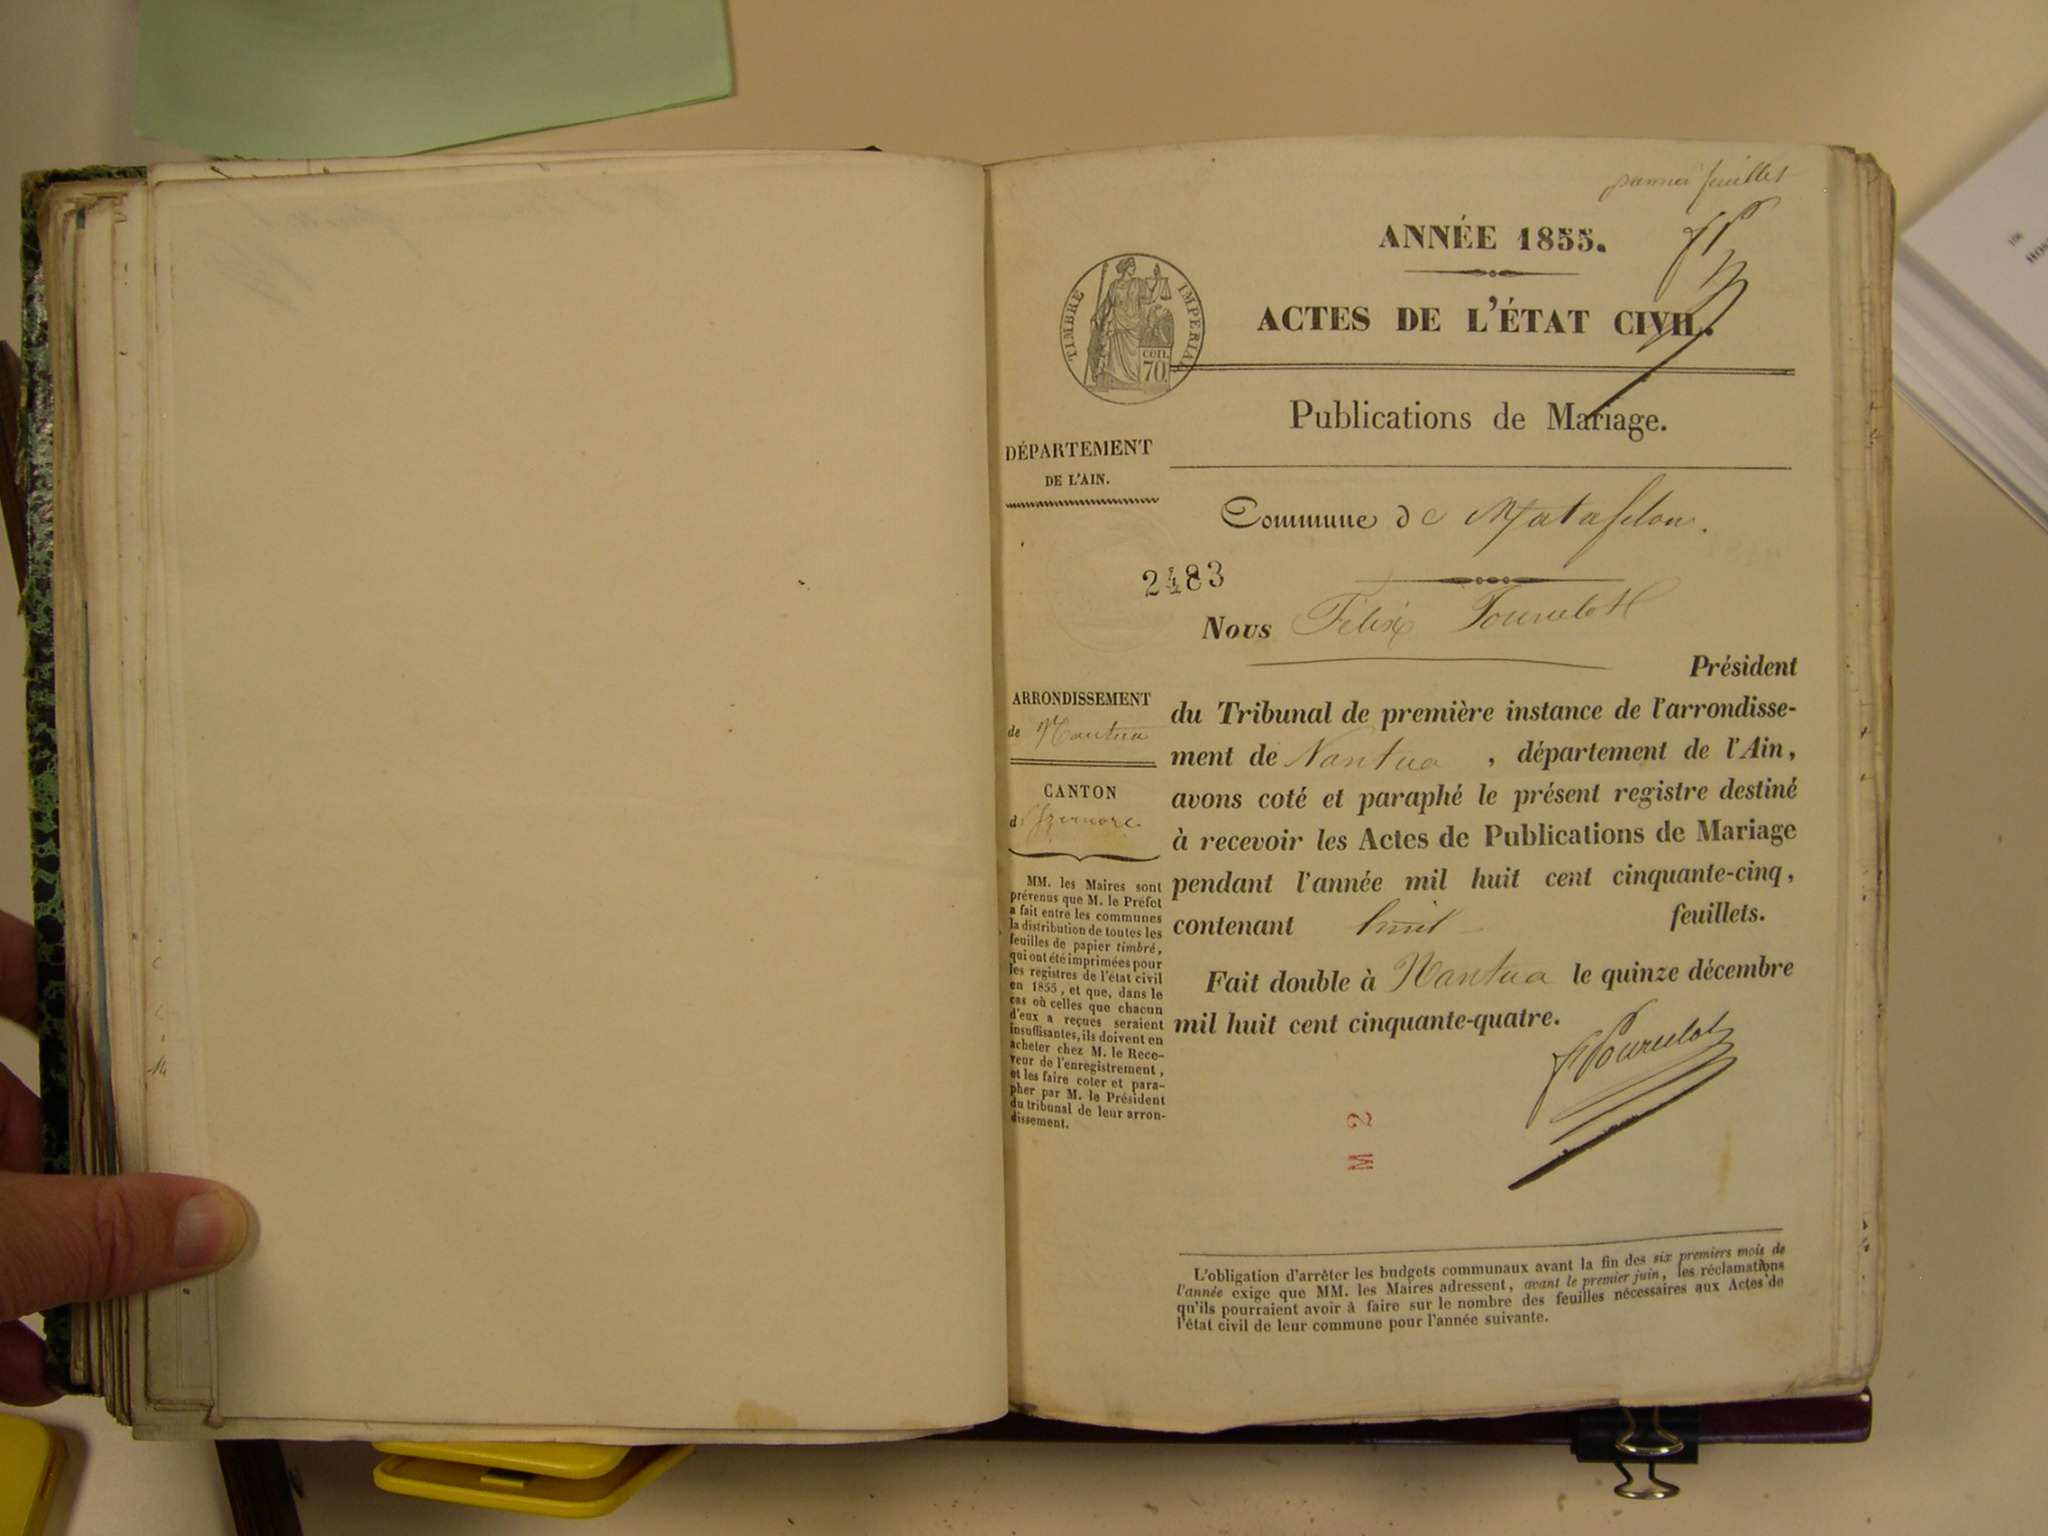 premier feuillet
ANNÉE 1855.
ACTES DE L'ÉTAT CIVIL.
TIMBRE IMPERIAL
cen.
70.
Publications de Mariage.
DÉPARTEMENT
DE L'AIN.
Commune de Matafelon.
2483
Nous Félix Pourcelot
Président
du Tribunal de première instance de l'arrondisse-
ment de Nantua, département de l'Ain,
avons coté et paraphé le présent registre destiné
à recevoir les Actes de Publications de Mariage
pendant l'année mil huit cent cinquante-cinq,
contenant huit feuillets.
Fait double à Nantua le quinze décembre
mil huit cent cinquante-quatre.
F Pourcelot
ARRONDISSEMENT
de Nantua
CANTON
d'Izernore
MM. les Maires sont
prévenus que M. le Préfet
a fait entre les communes
la distribution de toutes les
feuilles de papier timbré,
qui ont été imprimées pour
les registres de l'état civil
en 1855, et que, dans le
cas où celles que chacun
d'eux a reçues seraient
insuffisantes, ils doivent en
acheter chez M. le Rece-
veur de l'enregistrement,
et les faire coter et para-
pher par M. le Président
du tribunal de leur arron-
dissement.
M 2
L'obligation d'arrêter les budgets communaux avant la fin des six premiers mois de
l'année exige que MM. les Maires adressent, avant le premier juin, les réclamations
qu'ils pourraient avoir à faire sur le nombre des feuilles nécessaires aux Actes de
l'état civil de leur commune pour l'année suivante.